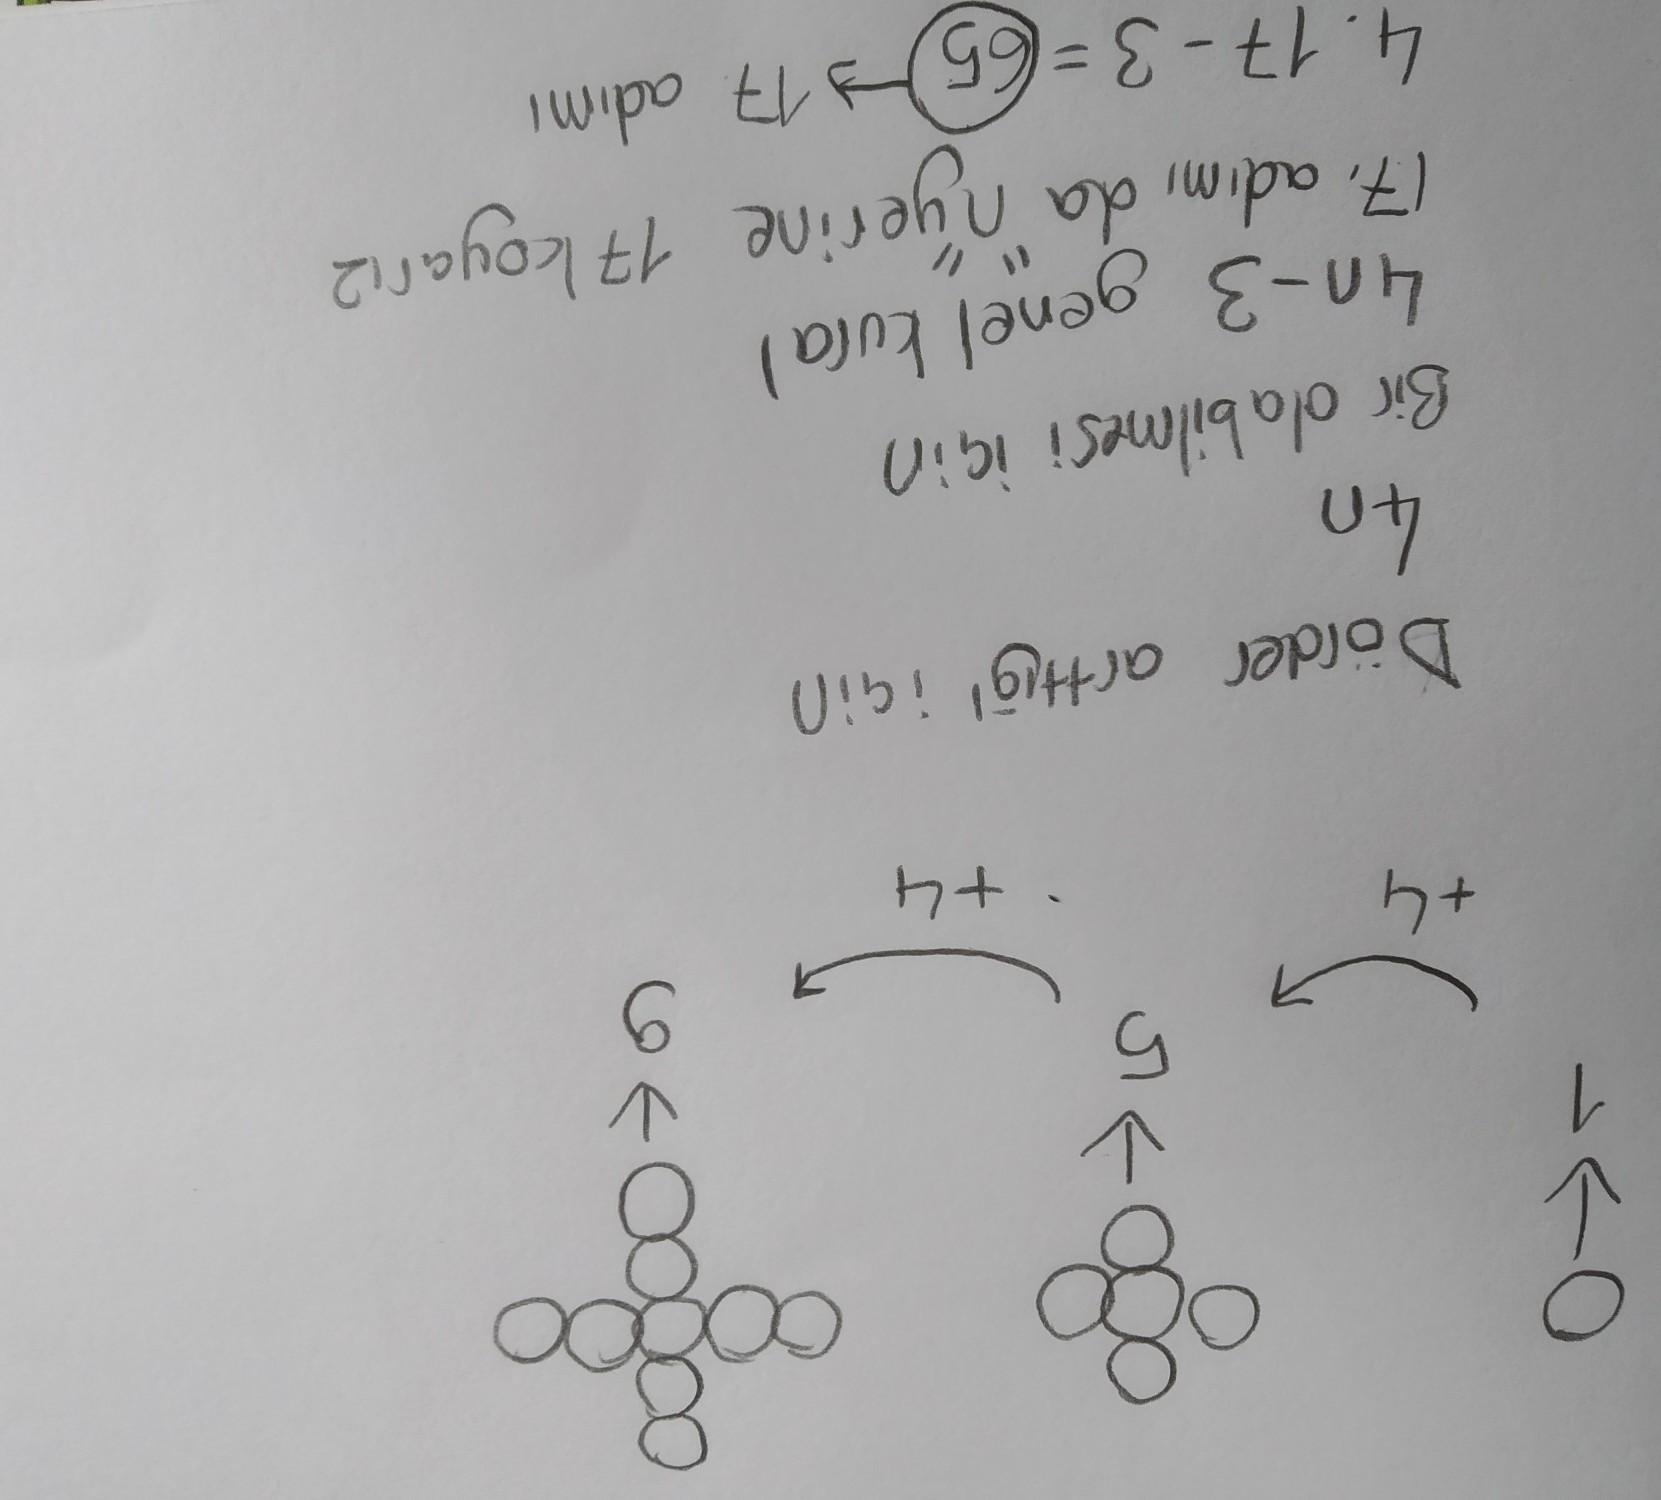 1 5 9
+4 +4
Dörder arttığı için
4n
Bir olabilmesi için
4n-3 genel kural
17. adımı da "n" yerine 17 koyarız
4.17-3=65→17 adımı